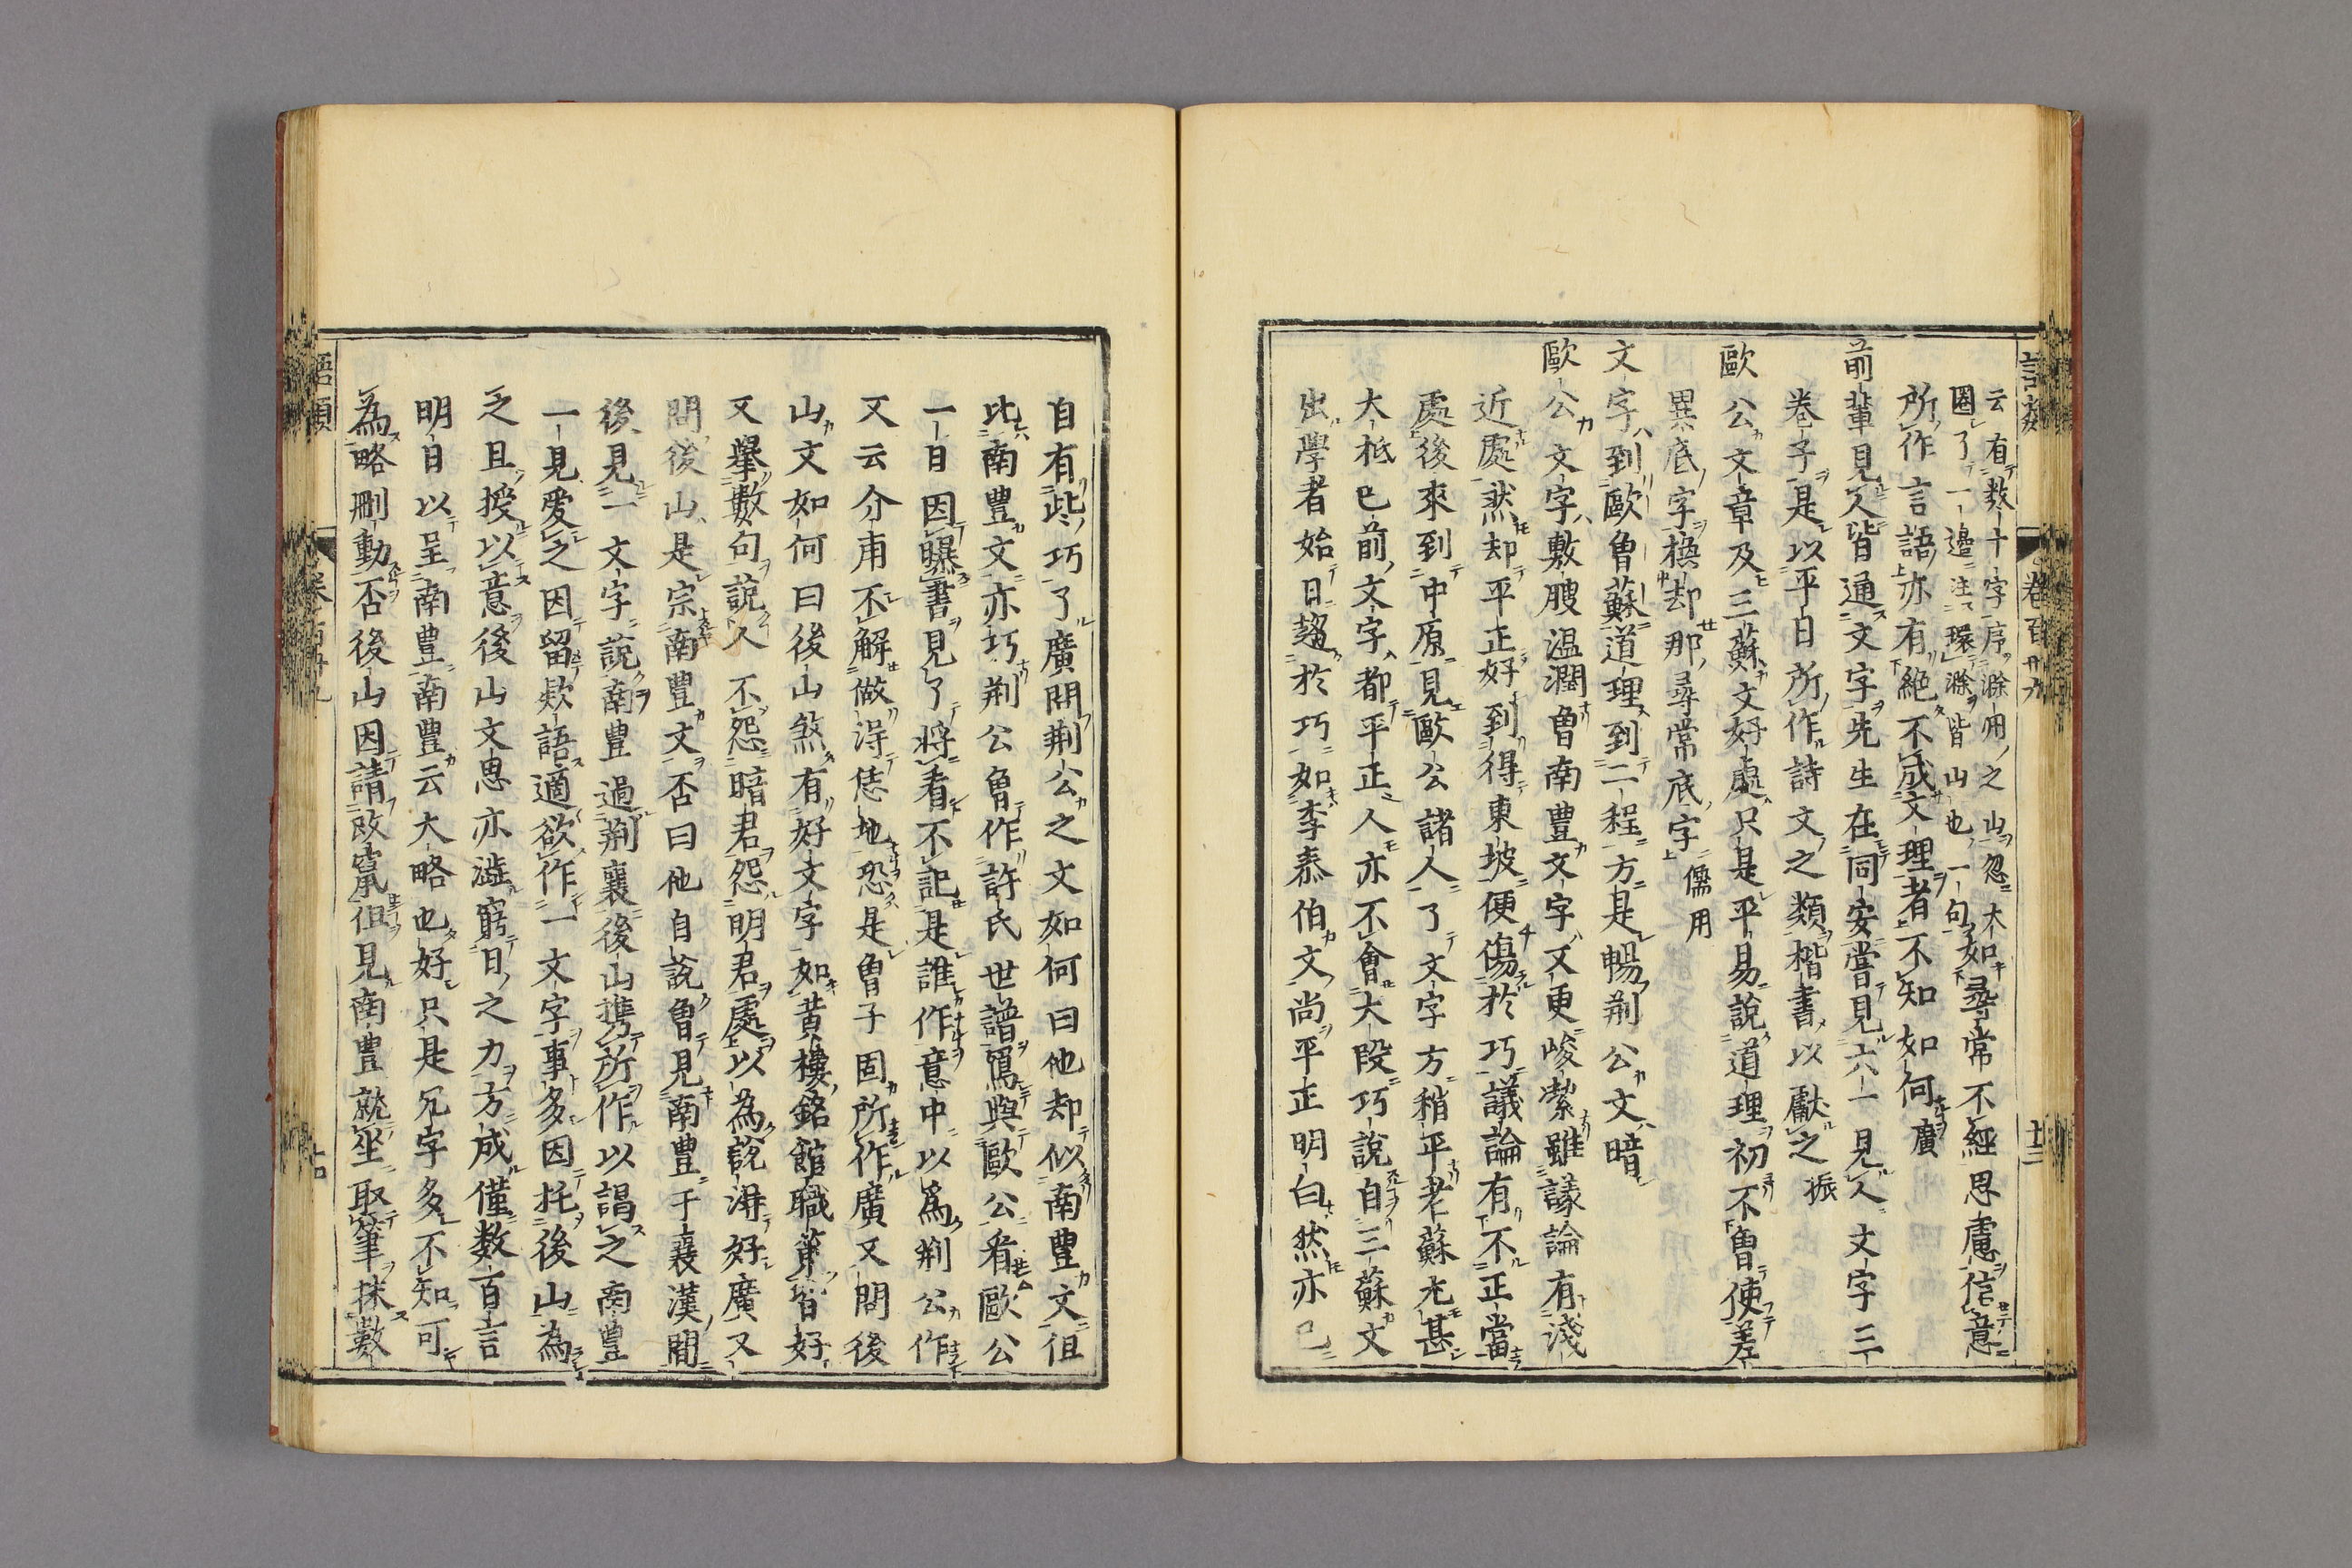 語類
卷百卅九
云有数十字序滁州之山忽大
圈了一邊注環滁皆山也一句
如尋常不經思慮信意
所作言語亦有絶不成文理者不知如何廣
前輩見人皆通文字先生在同安嘗見六一見人文字三
卷子是以平日所作詩文之類楷書以獻之振
歐公文章及三蘇文好處只是平易說道理初不曽使差
異底字換却那尋常底字儒用
文字到歐曽蘇道理到二程方是暢荆公文暗
歐公文字敷腴温潤曽南豊文字又更峻潔雖議論有淺
近處然却平正好到得東坡便傷於巧議論有不正當
處後來到中原見歐公諸人了文字方稍平老蘇尤甚
大柢已前文字都平正人亦不會大段巧說自三蘇文
出學者始日趨於巧如李泰伯文尚平正明白然亦已
自有些巧了廣問荆公之文如何曰他却似南豊文但
比南豊文亦巧荆公曽作許氏世譜寫與歐公看歐公
一日因曝書見了將看不記是誰作意中以爲荆公作
又云介甫不解做淂恁地恐是曽子固所作廣又問後
山文如何曰後山煞有好文字如黄樓銘館職策皆好
又舉數句說人不怨暗君怨明君處以為說淂好廣又
問後山是宗南豊文否曰他自說曽見南豊于襄漢間
後見一文字說南豊過荆襄後山携所作以謁之南豊
一見愛之因留欵語適欲作一文字事多因托後山為
之且授以意後山文思亦澁窮日之力方成僅数百言
明日以呈南豊南豊云大略也好只是冗字多不知可
為略刪動否後山因請改竄但見南豊就坐取筆抹數
語類